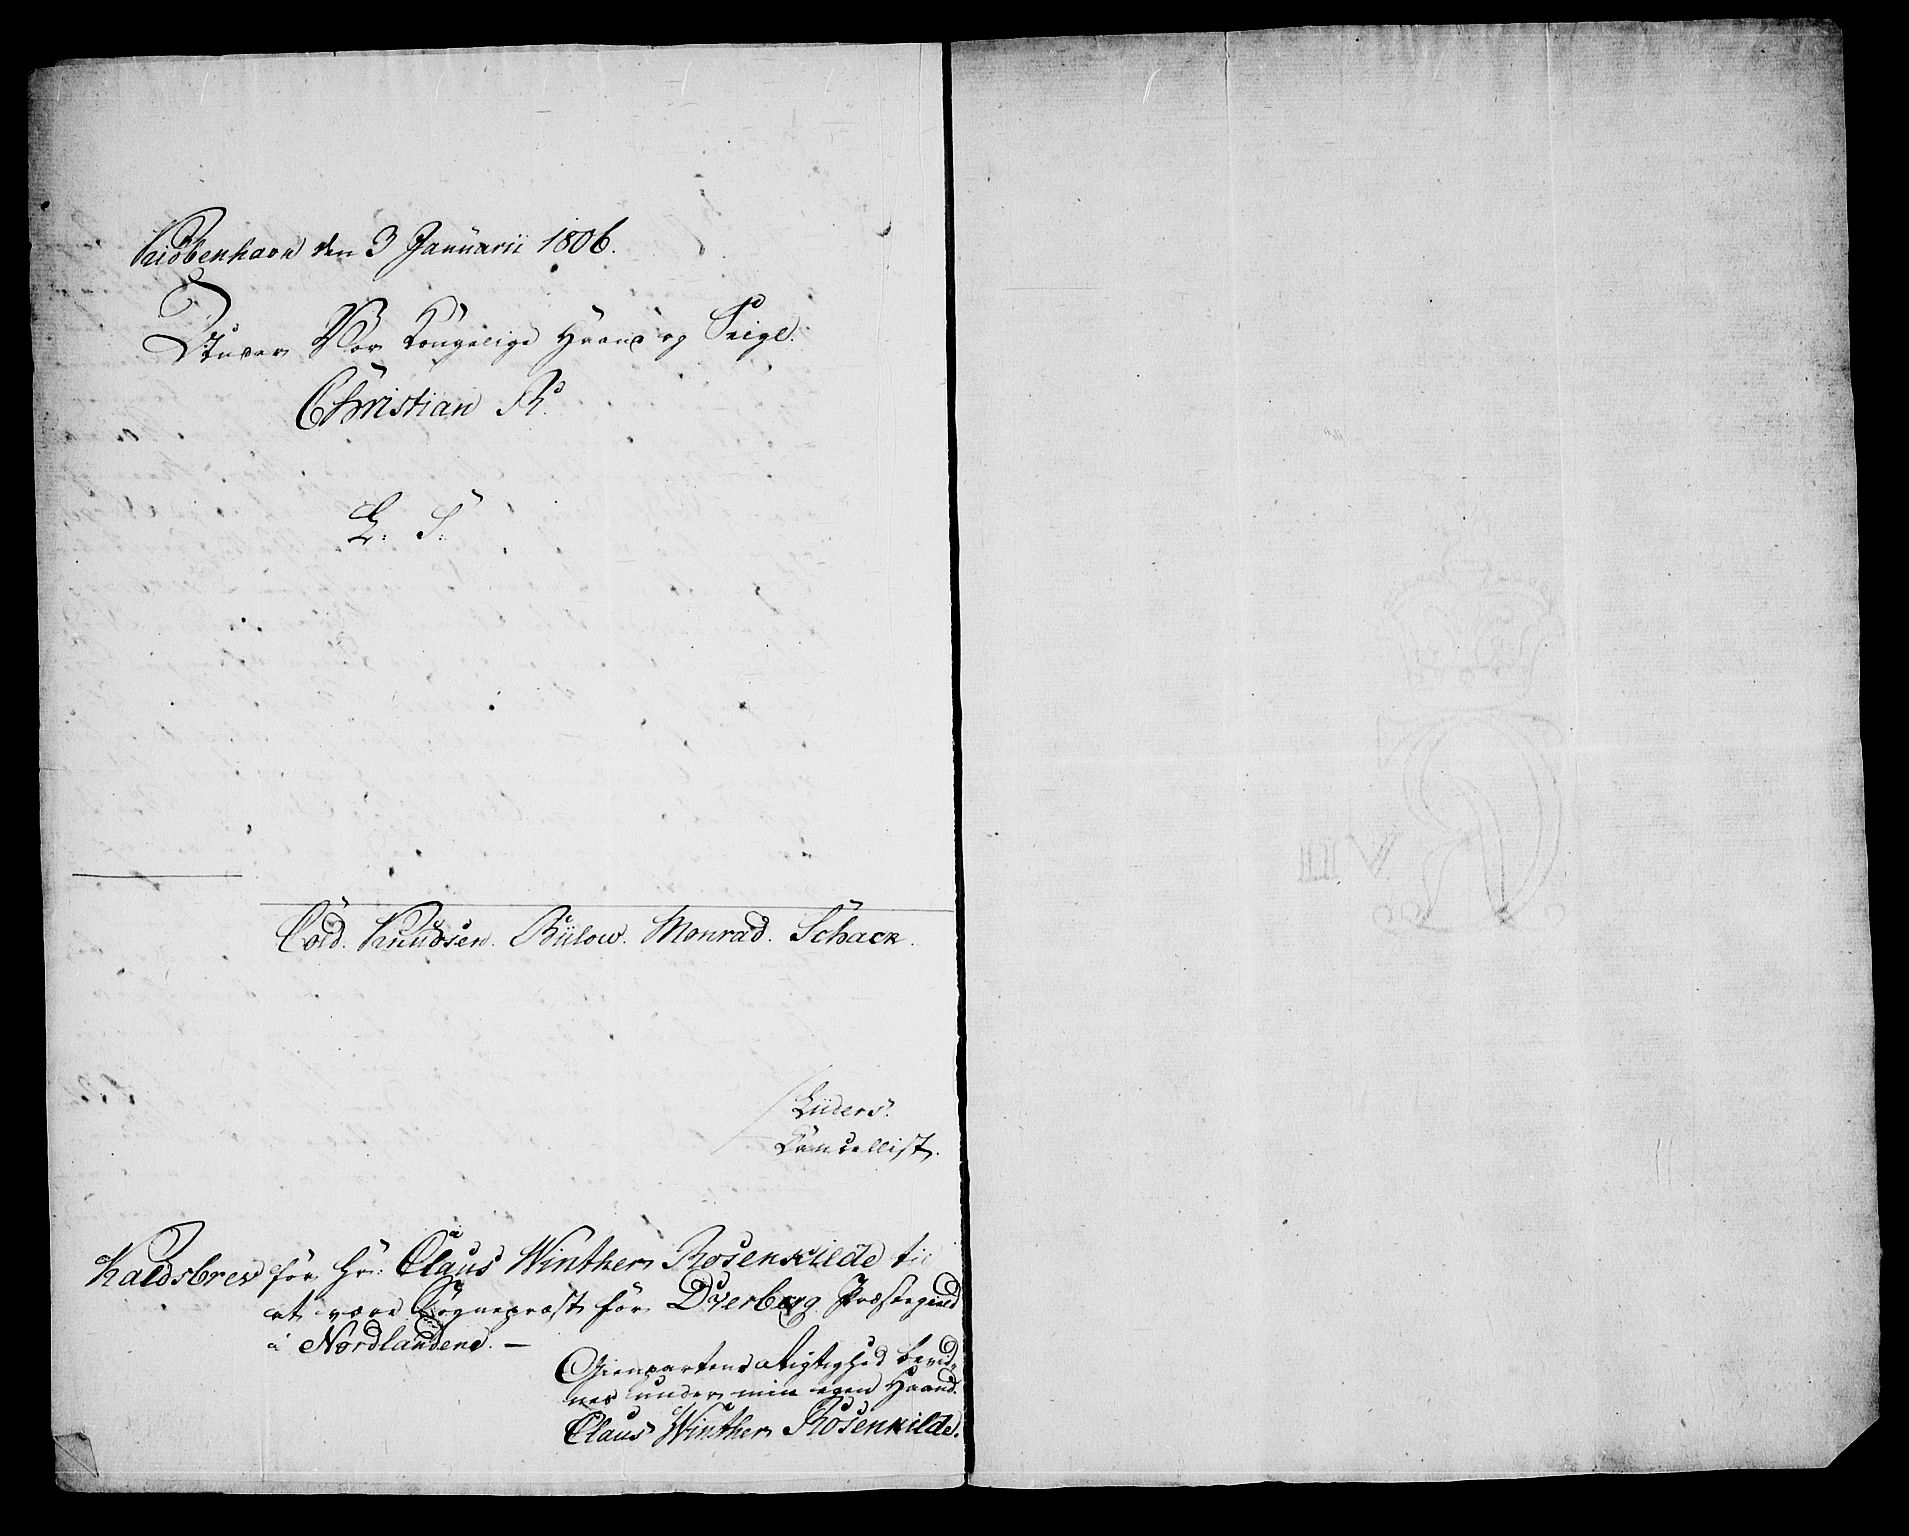 Kiöbenhavn den 3 Januarii 1806.
Under Vor Kongelige Haand og Seigl.
Christian R.
L. S.
Cold. Knudsen. Bülow. Monrad. Schack.
Lüders.
Cancellist.
Kaldsbrev for Hr: Claus Winther Rosenkilde til
at være Sognepræst for Dverberg Præstegield
i Nordlandene. —
Gienpartens Rigtighed bevid-
nes under min egen Haand.
Claus Winther Rosenkilde.
VII